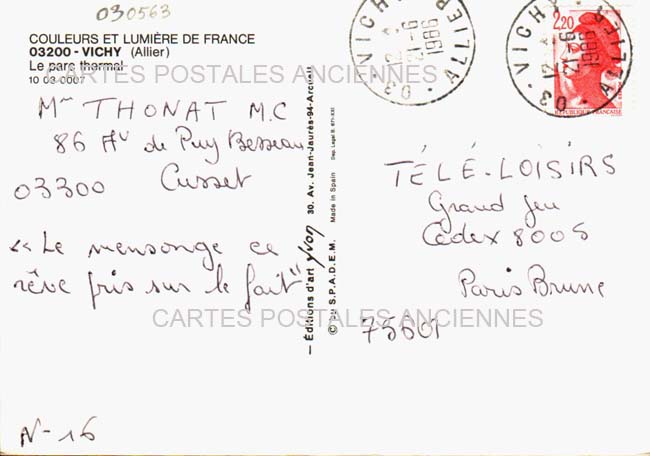 030563
COULEURS ET LUMIÈRE DE FRANCE
03200 - VICHY (Allier)
Le parc thermal
10 03 0007
CARTES POSTALES ANCIENNES
Mme THONAT M.C
86 Av de Puy Besseau
03300 Cusset
« Le mensonge ce
rêve pris sur le fait"
N- 16
— Éditions d'art yvon 30. Av. Jean-Jaurès-94-Arcueil
© by S.P.A.D.E.M. Made in Spain Dep. Legal B.
03 · VICHY · ALLIER
12 H
21-6
1986
03 · VICHY · ALLIER
12 H
21-6
1986
2,20
RÉPUBLIQUE FRANÇAISE
TÉLÉ-LOISIRS
Grand Jeu
Cédex 8005
Paris Brune
75601
CARTES POSTALES ANCIENNES